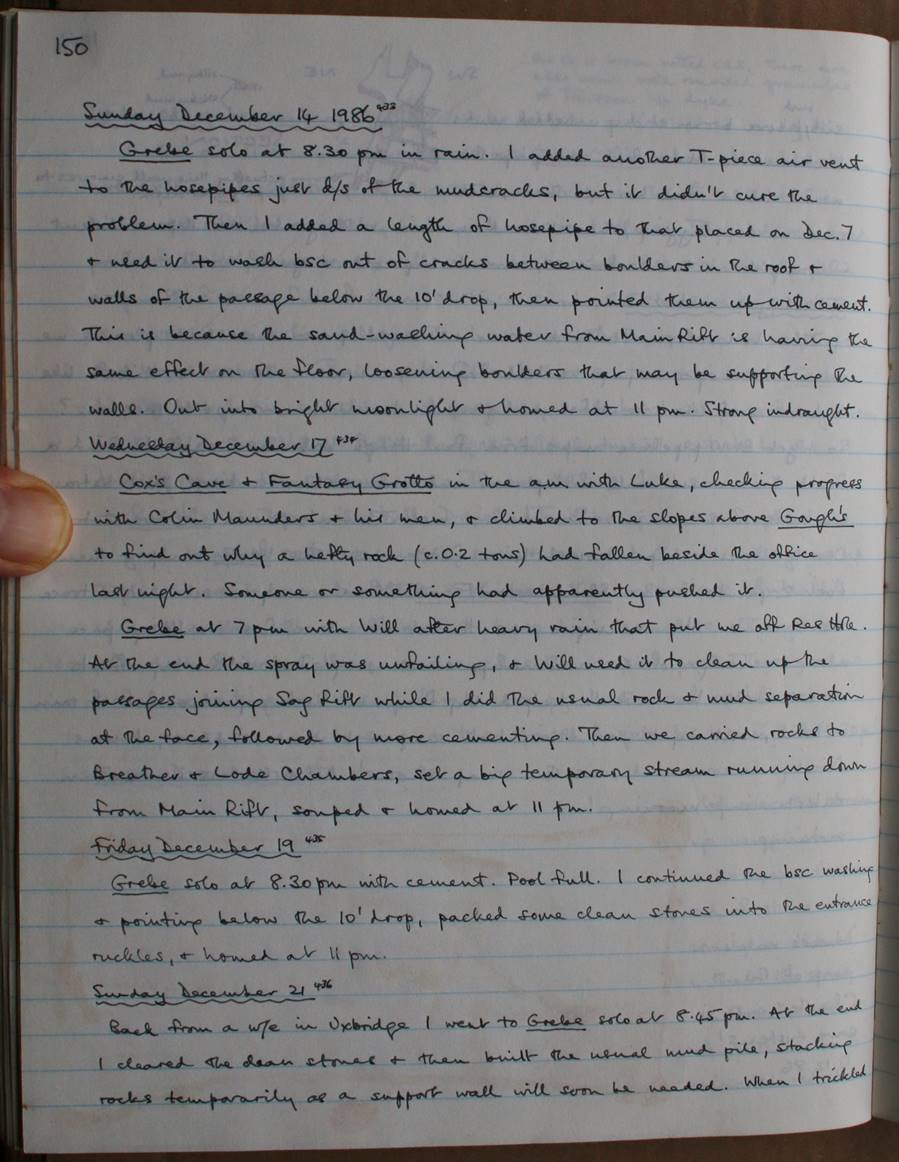 150
Sunday December 14 1986 433
Grebe solo at 8.30 pm in rain. I added another T-piece air vent
to the hosepipes just d/s of the mudcracks, but it didn't cure the
problem. Then I added a length of hosepipe to that placed on Dec. 7
+ used it to wash bsc out of cracks between boulders in the roof +
walls of the passage below the 10' drop, then pointed them up with cement.
This is because the sand-washing water from Main Rift is having the
same effect on the floor, loosening boulders that may be supporting the
walls. Out into bright moonlight + homed at 11 pm. Strong indraught.
Wednesday December 17 434
Cox's Cave + Fantasy Grotto in the a.m with Luke, checking progress
with Colin Maunders + his men, + climbed to the slopes above Gough's
to find out why a hefty rock (c. 0.2 tons) had fallen beside the office
last night. Someone or something had apparently pushed it.
Grebe at 7 pm with Will after heavy rain that put me off Res Hole.
At the end the spray was unfailing, + Will used it to clean up the
passages joining Sag Rift while I did the usual rock + mud separation
at the face, followed by more cementing. Then we carried rocks to
Breather + Lode Chambers, set a big temporary stream running down
from Main Rift, souped + homed at 11 pm.
Friday December 19 435
Grebe solo at 8.30 pm with cement. Pool full. I continued the bsc washing
+ pointing below the 10' drop, packed some clean stones into the entrance
ruckles, + homed at 11 pm.
Sunday December 21 436
Back from a w/e in Uxbridge I went to Grebe solo at 8.45 pm. At the end
I cleared the clean stones + then built the usual mud pile, stacking
rocks temporarily as a support wall will soon be needed. When I trickled